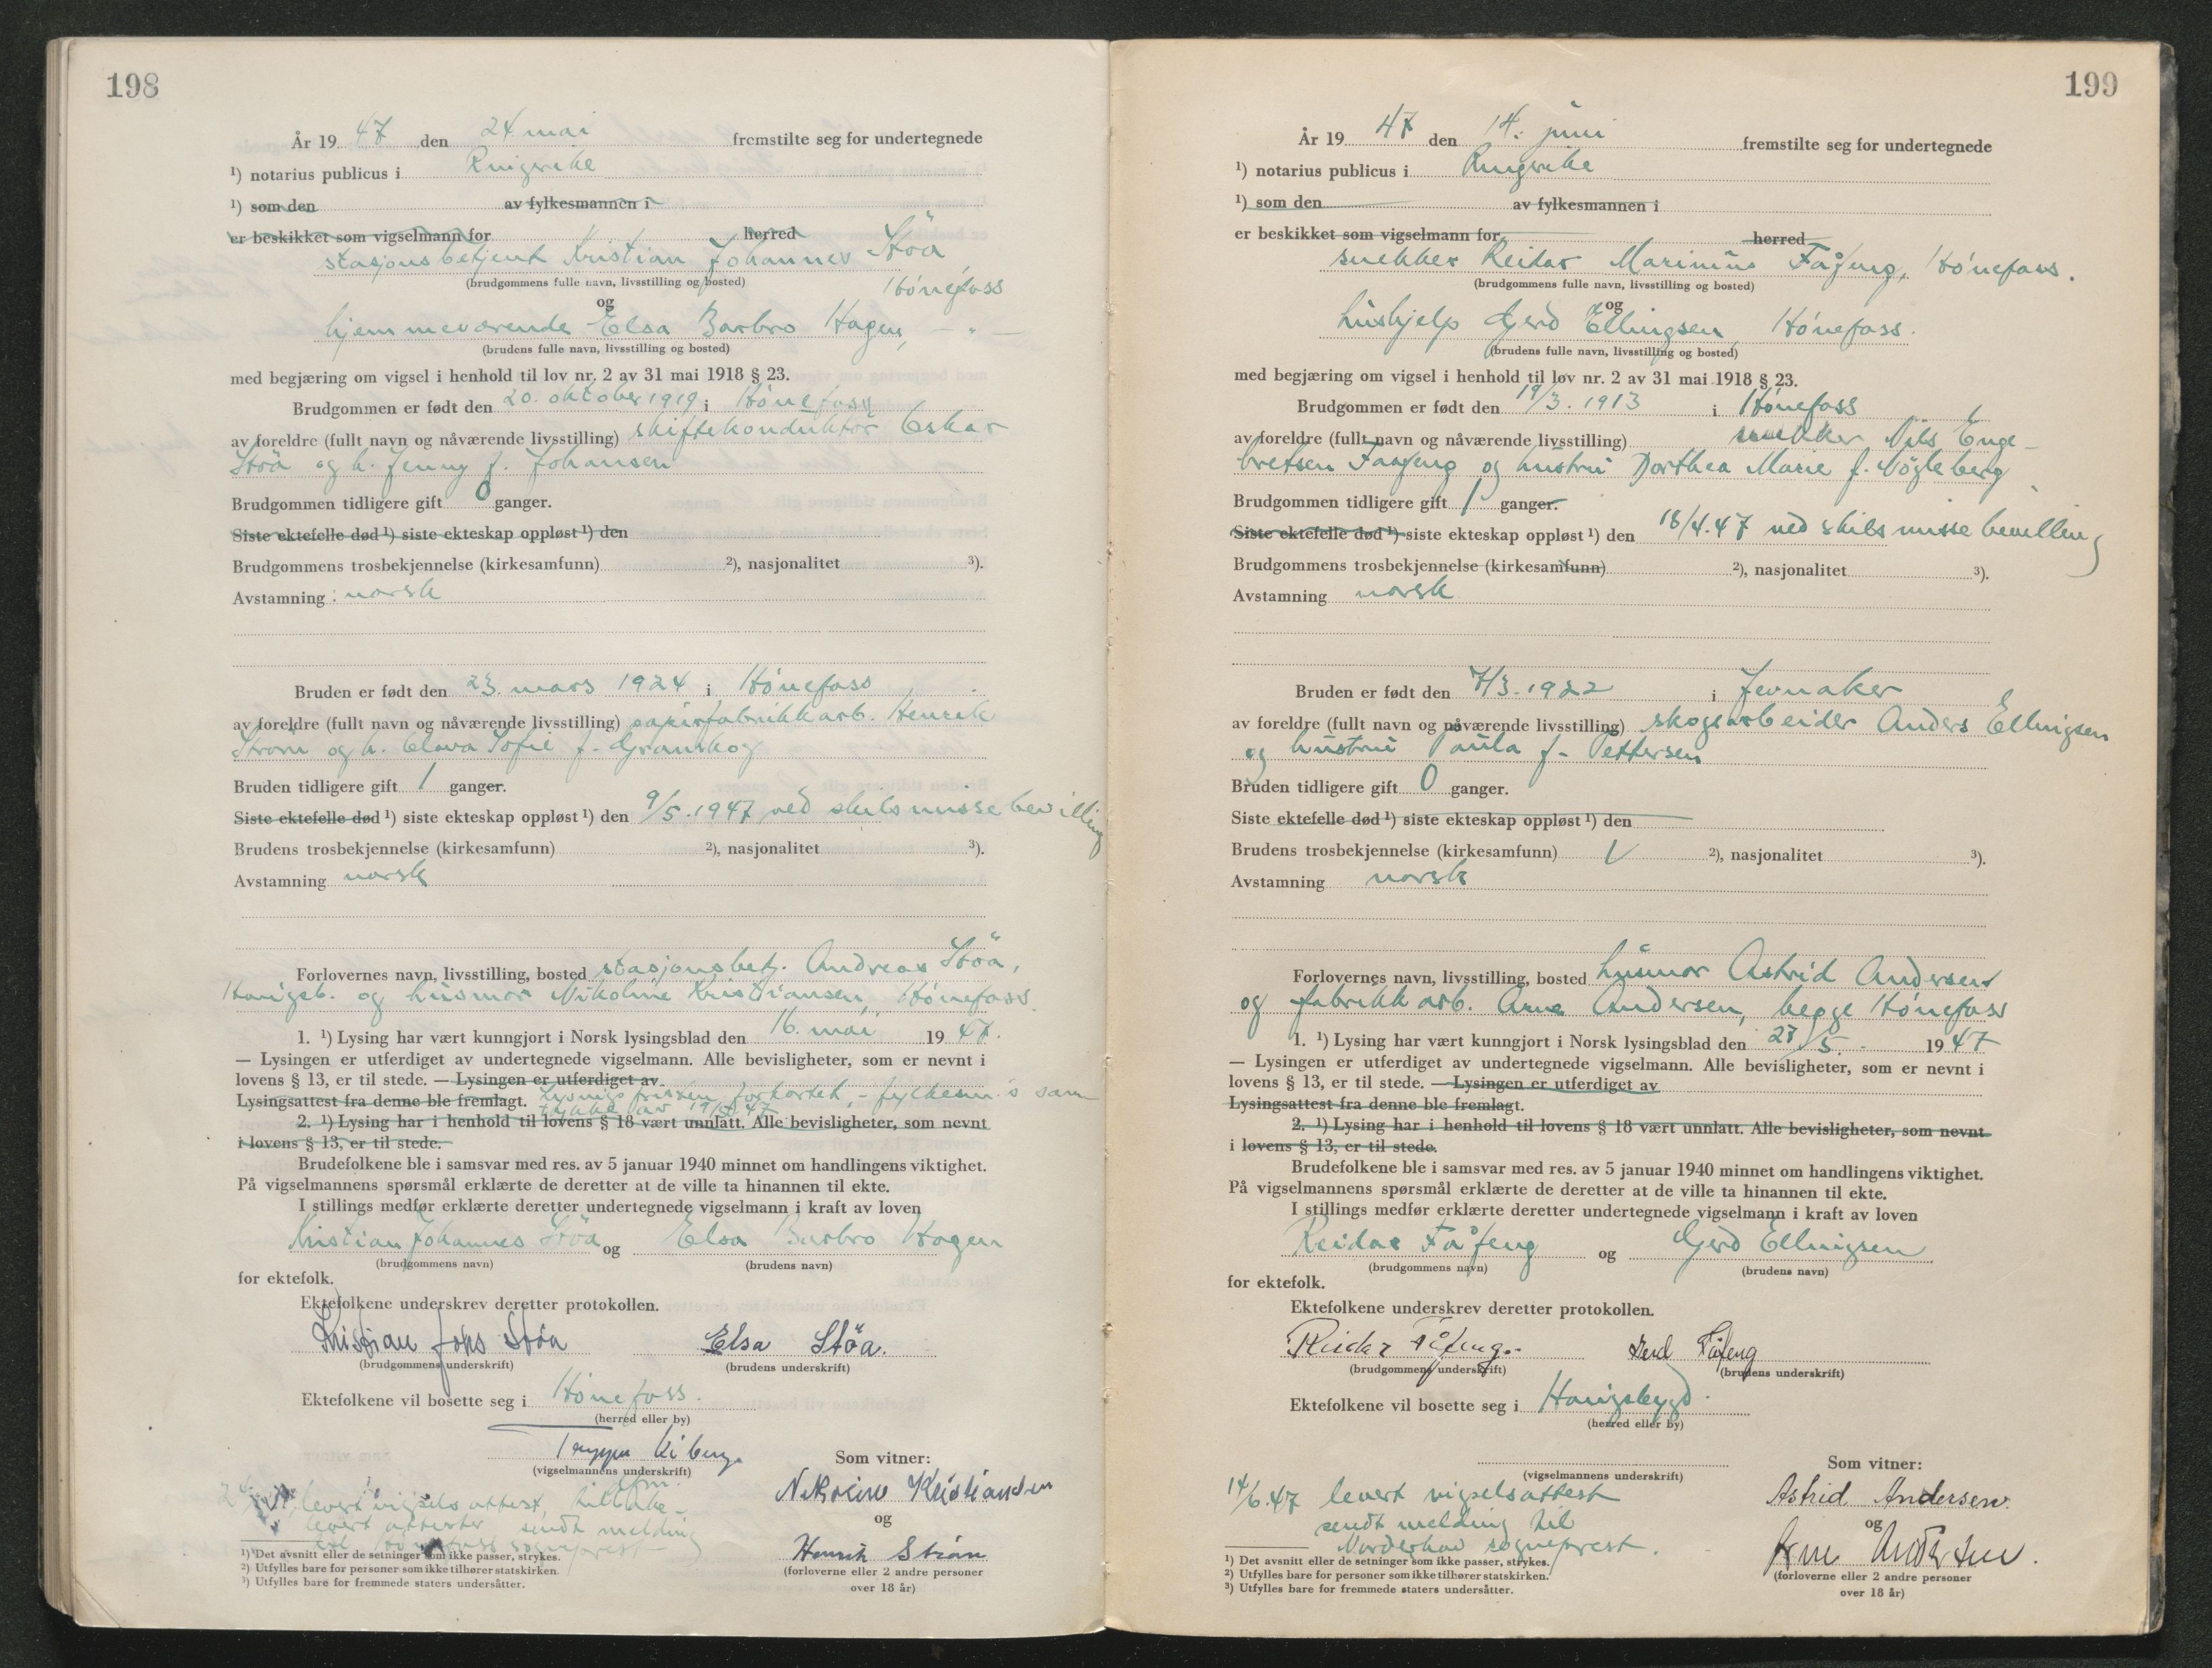 198
År 19 47 den 24. mai fremstilte seg for undertegnede
¹) notarius publicus i Ringerike
¹) som den av fylkesmannen i
er beskikket som vigselmann for herred
stasjonsbetjent Kristian Johannes Stöa
(brudgommens fulle navn, livsstilling og bosted) Hönefoss
og
hjemmeværende Elsa Barbro Hagen, — " —
(brudens fulle navn, livsstilling og bosted)
med begjæring om vigsel i henhold til lov nr. 2 av 31 mai 1918 § 23.
Brudgommen er født den 20. oktober 1919 i Hönefoss
av foreldre (fullt navn og nåværende livsstilling) skiftekonduktör Oskar
Stöa og h. Jenny f. Johansen
Brudgommen tidligere gift 0 ganger.
Siste ektefelle død ¹) siste ekteskap oppløst ¹) den
Brudgommens trosbekjennelse (kirkesamfunn) ²), nasjonalitet ³).
Avstamning : norsk
Bruden er født den 23. mars 1924 i Hönefoss
av foreldre (fullt navn og nåværende livsstilling) papirfabrikkarb. Henrik
Strøm og h. Clara Sofie f. Granskog
Bruden tidligere gift 1 ganger.
Siste ektefelle død ¹) siste ekteskap oppløst ¹) den 9/5.1947 ved skilsmissebevilling
Brudens trosbekjennelse (kirkesamfunn) ²), nasjonalitet ³).
Avstamning norsk
Forlovernes navn, livsstilling, bosted stasjonsbetj. Andreas Stöa,
og husmor Nikoline Kristiansen, Hönefoss
1. ¹) Lysing har vært kunngjort i Norsk lysingsblad den 16. mai 19 47.
— Lysingen er utferdiget av undertegnede vigselmann. Alle bevisligheter, som er nevnt i
lovens § 13, er til stede. — Lysingen er utferdiget av
Lysingsattest fra denne ble fremlagt. Lysningsfristen forkortet, - fylkesm.'s sam-
tykke av 47
2. ¹) Lysing har i henhold til lovens § 18 vært unnlatt. Alle bevisligheter, som nevnt
i lovens § 13, er til stede.
Brudefolkene ble i samsvar med res. av 5 januar 1940 minnet om handlingens viktighet.
På vigselmannens spørsmål erklærte de deretter at de ville ta hinannen til ekte.
I stillings medfør erklærte deretter undertegnede vigselmann i kraft av loven
Kristian Johannes Stöa og Elsa Barbro Hagen
(brudgommens navn) (brudens navn)
for ektefolk.
Ektefolkene underskrev deretter protokollen.
Kristian Johs Stöa Elsa Stöa.
(brudgommens underskrift) (brudens underskrift)
Ektefolkene vil bosette seg i Hönefoss.
(herred eller by)
Trygve Kiberg
(vigselmannens underskrift) Som vitner:
levert vigselsattest, tilbake- Nikoline Kristiansen
levert attester, sendt melding og
til Hönefoss sogneprest Henrik Strøm
¹) Det avsnitt eller de setninger som ikke passer, strykes.
²) Utfylles bare for personer som ikke tilhører statskirken. (forloverne eller 2 andre personer
³) Utfylles bare for fremmede staters undersåtter. over 18 år)
199
År 19 47 den 14. juni fremstilte seg for undertegnede
¹) notarius publicus i Ringerike
¹) som den av fylkesmannen i
er beskikket som vigselmann for herred
snekker Reidar Marinius Fåfeng, Hönefoss.
(brudgommens fulle navn, livsstilling og bosted)
og
hushjelp Gerd Ellingsen, Hönefoss.
(brudens fulle navn, livsstilling og bosted)
med begjæring om vigsel i henhold til lov nr. 2 av 31 mai 1918 § 23.
Brudgommen er født den 19/3. 1913 i Hönefoss
av foreldre (fullt navn og nåværende livsstilling) snekker Nils Enge-
bretsen Faafeng og hustru Dorthea Marie f. Bögleberg
Brudgommen tidligere gift 1 ganger.
Siste ektefelle død ¹) siste ekteskap oppløst ¹) den 18/4.47 ved skilsmissebevilling
Brudgommens trosbekjennelse (kirkesamfunn) ²), nasjonalitet ³).
Avstamning norsk
Bruden er født den 7/3.1922 i Jevnaker
av foreldre (fullt navn og nåværende livsstilling) skogsarbeider Anders Ellingsen
og hustru Paula f. Pettersen
Bruden tidligere gift 0 ganger.
Siste ektefelle død ¹) siste ekteskap oppløst ¹) den
Brudens trosbekjennelse (kirkesamfunn) ²), nasjonalitet ³).
Avstamning norsk
Forlovernes navn, livsstilling, bosted husmor Astrid Andersen
og fabrikkarb. Arne Andersen, begge Hönefoss
1. ¹) Lysing har vært kunngjort i Norsk lysingsblad den 27/5. - 19 47
— Lysingen er utferdiget av undertegnede vigselmann. Alle bevisligheter, som er nevnt i
lovens § 13, er til stede. — Lysingen er utferdiget av
Lysingsattest fra denne ble fremlagt.
2. ¹) Lysing har i henhold til lovens § 18 vært unnlatt. Alle bevisligheter, som nevnt
i lovens § 13, er til stede.
Brudefolkene ble i samsvar med res. av 5 januar 1940 minnet om handlingens viktighet.
På vigselmannens spørsmål erklærte de deretter at de ville ta hinannen til ekte.
I stillings medfør erklærte deretter undertegnede vigselmann i kraft av loven
Reidar Fåfeng og Gerd Ellingsen
(brudgommens navn) (brudens navn)
for ektefolk.
Ektefolkene underskrev deretter protokollen.
Reidar Fåfeng. Gerd Fåfeng
(brudgommens underskrift) (brudens underskrift)
Ektefolkene vil bosette seg i Haugsbygd.
(herred eller by)
(vigselmannens underskrift) Som vitner:
14/6.47 levert vigselsattest Astrid Andersen.
sendt melding til og
Norderhov sogneprest. Arne Andersen.
¹) Det avsnitt eller de setninger som ikke passer, strykes.
²) Utfylles bare for personer som ikke tilhører statskirken. (forloverne eller 2 andre personer
³) Utfylles bare for fremmede staters undersåtter. over 18 år)